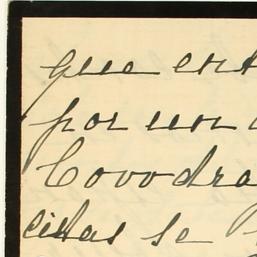 que ent
por un
Covodra
cidas se